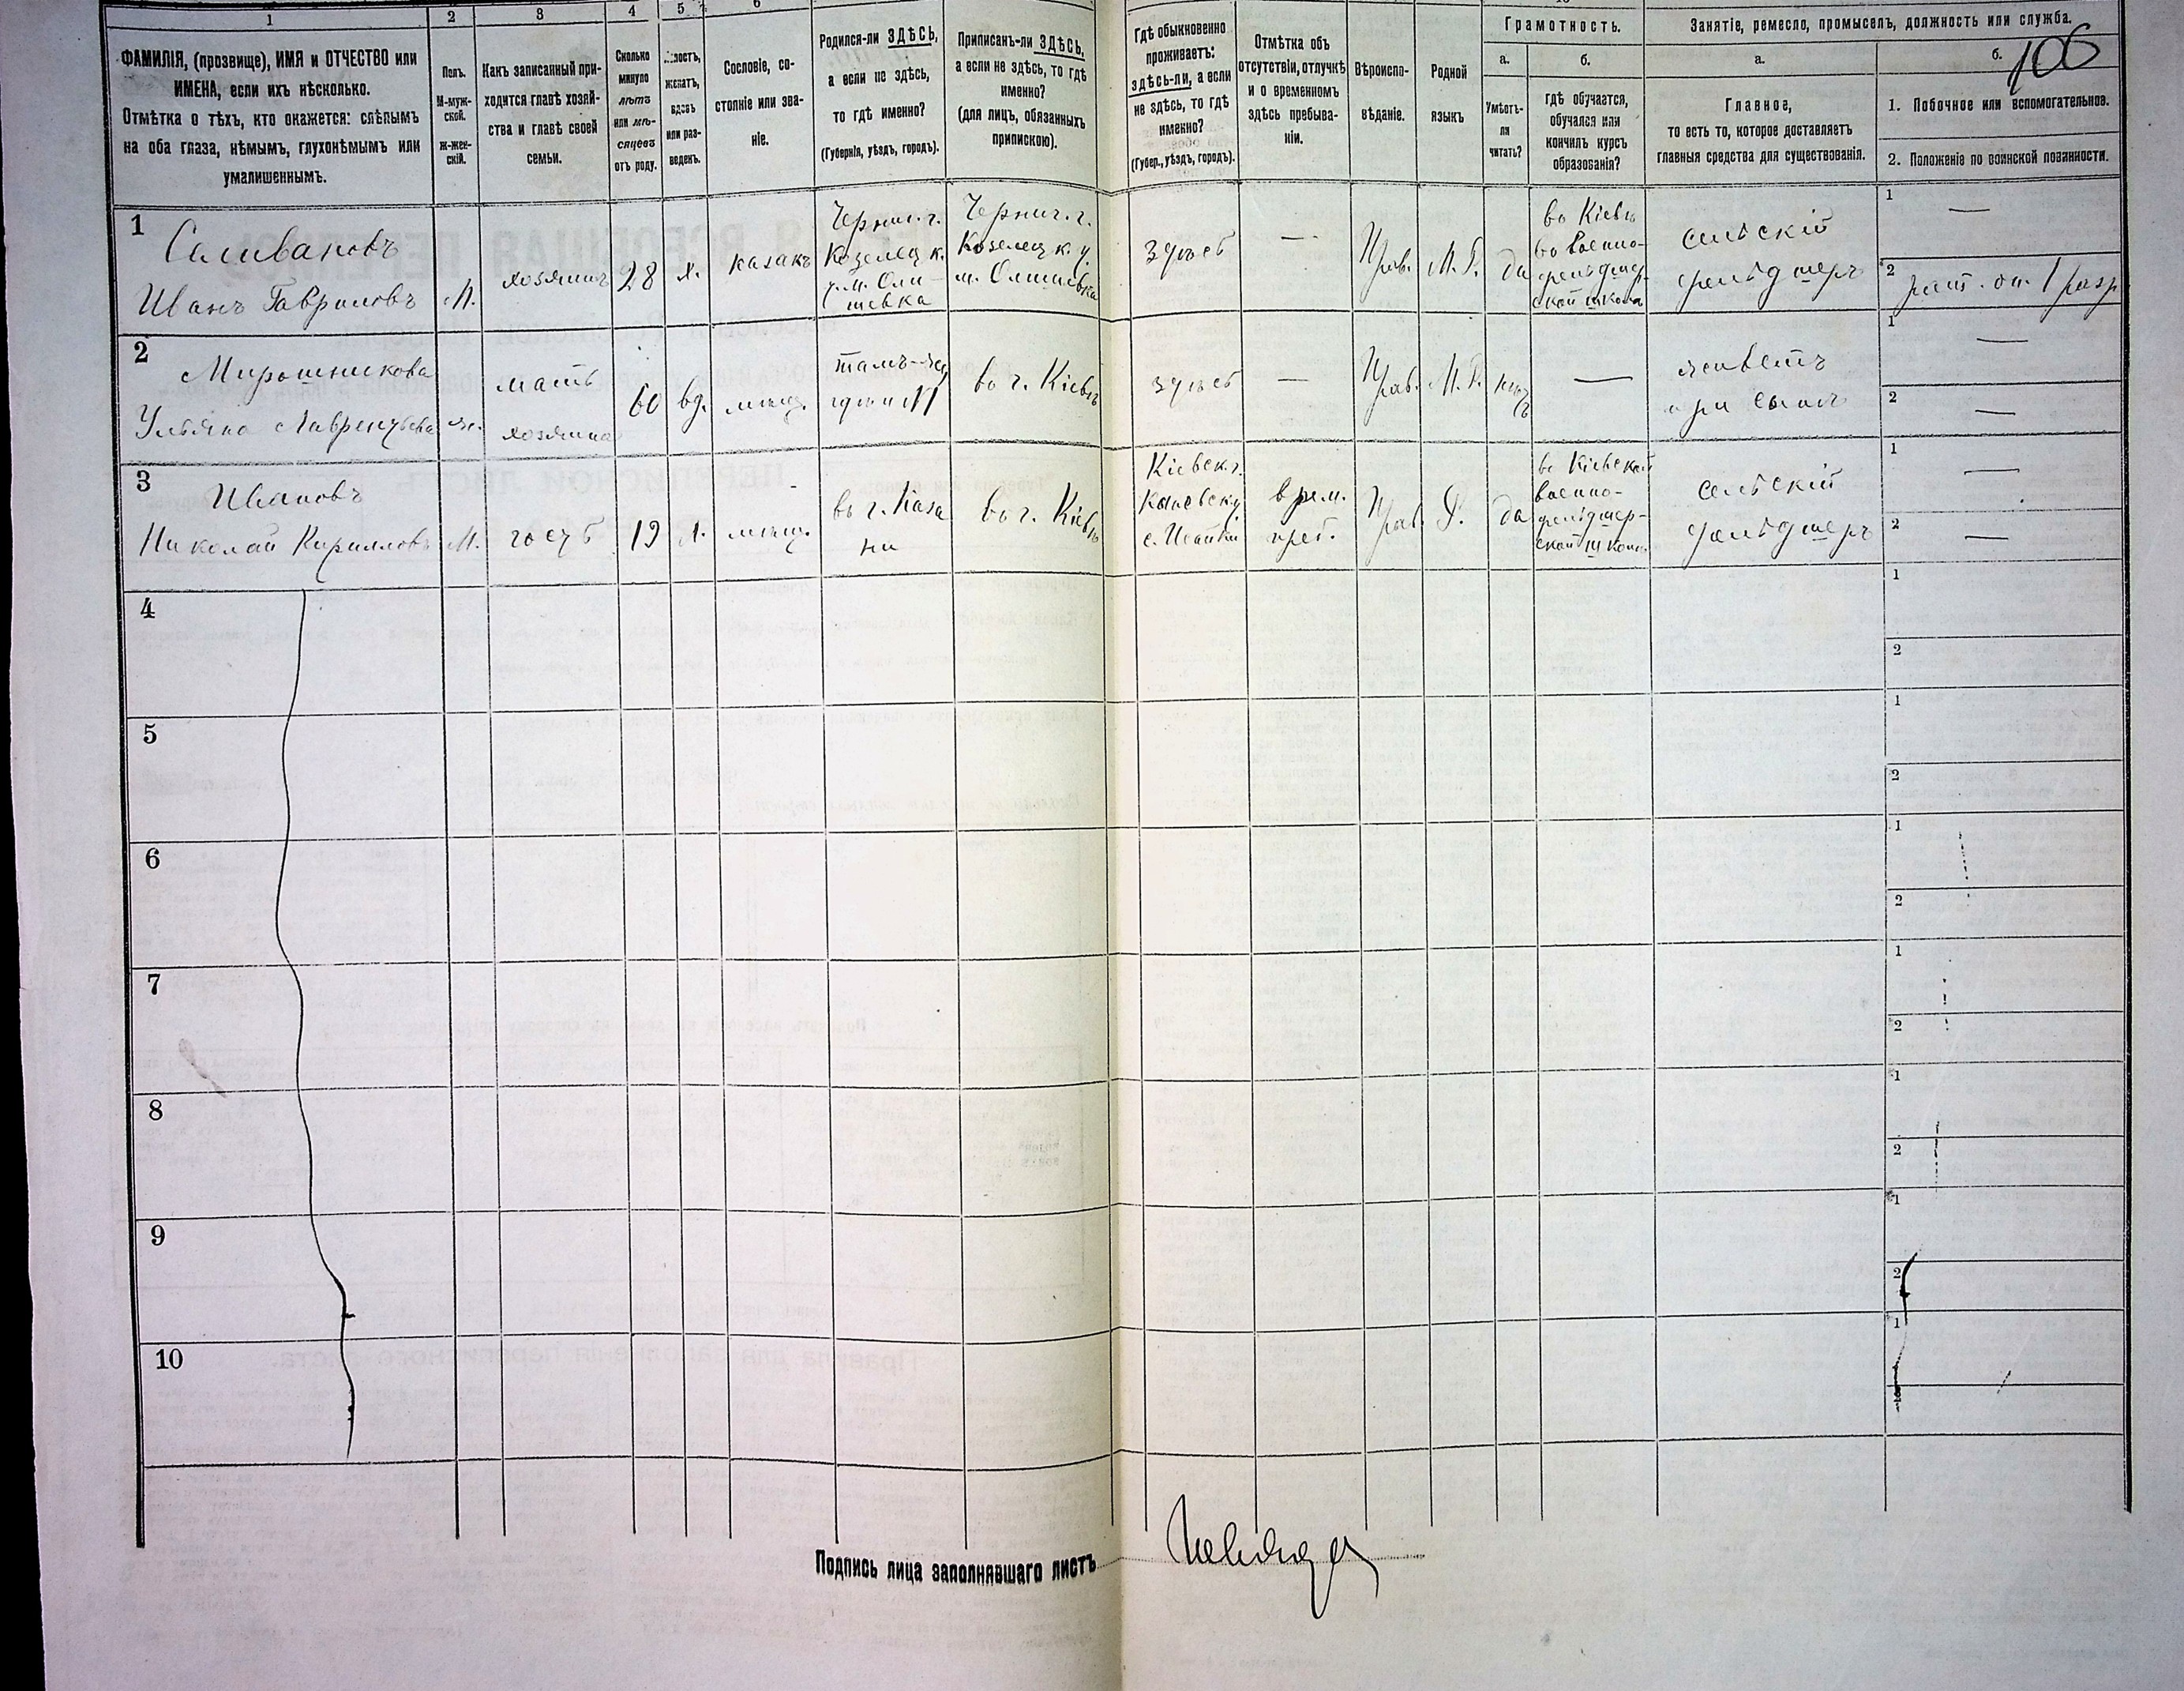 1
2
3
4
5
6
ФАМИЛІЯ, (прозвище), ИМЯ и ОТЧЕСТВО или
ИМЕНА, если ихъ нѣсколько.
Отмѣтка о тѣхъ, кто окажется: слѣпымъ
на оба глаза, нѣмымъ, глухонѣмымъ или
умалишеннымъ.
Полъ.
М-муж-
ской.
ж-жен-
скій.
Какъ записанный при-
ходится главѣ хозяй-
ства и главѣ своей
семьи.
Сколько
минуло
лѣтъ
или мѣ-
сяцевъ
отъ роду.
женатъ,
вдовъ
или раз-
веденъ.
Сословіе, со-
стояніе или зва-
ніе.
Родился-ли ЗДѢСЬ,
а если не здѣсь,
то гдѣ именно?
(Губернія, уѣздъ, городъ).
Приписанъ-ли ЗДѢСЬ,
а если не здѣсь, то гдѣ
именно?
(для лицъ, обязанныхъ
припискою).
Гдѣ обыкновенно
проживаетъ:
здѣсь-ли, а если
не здѣсь, то гдѣ
именно?
(Губер., уѣздъ, городъ).
Отмѣтка объ
отсутствіи, отлучкѣ
и о временномъ
здѣсь пребыва-
ніи.
Вѣроиспо-
вѣданіе.
Родной
языкъ
Грамотность.
а.
Умѣетъ-
ли
читать?
б.
гдѣ обучается,
обучался или
кончилъ курсъ
образованія?
Занятіе, ремесло, промыселъ, должность или служба.
а.
Главное,
то есть то, которое доставляетъ
главныя средства для существованія.
б.
106
1. Побочное или вспомогательное.
2. Положеніе по воинской повинности.
1
Селивановъ
Иванъ Гавриловъ
М.
хозяинъ
28
х.
казакъ
Черниг. г.
Козелецк.
у. м. Оли-
шевка
Черниг. г.
Козелецк. у.
м. Олишевка
здѣсь
—
Прав.
М. Р.
да
во Кіевѣ
во Военно-
фельдшер-
ской школѣ
сельскій
фельдшеръ
1
—
2
рат. оп. 1 разр
2
Мирошникова
Ульяна Лаврентьева
ж.
мать
хозяина
60
вд.
мѣщ.
тамъ-же
гдѣ и №1
во г. Кіевѣ
здѣсь
—
Прав.
М. Р.
нѣтъ
—
живетъ
при сынѣ
1
—
2
—
3
Ивановъ
Николай Кирилловъ
М.
гость
19
х.
мѣщ.
въ г. Каза
ни
во г. Кіевѣ
Кіевск. г.
с.
врем.
преб.
Прав.
Р.
да
въ Кіевской
военно-
фельдшер-
ской школѣ
сельскій
фельдшеръ
1
—
2
—
4
1
2
5
1
2
6
1
2
7
1
2
8
1
2
9
1
2
10
1
2
Подпись лица заполнявшаго листъ